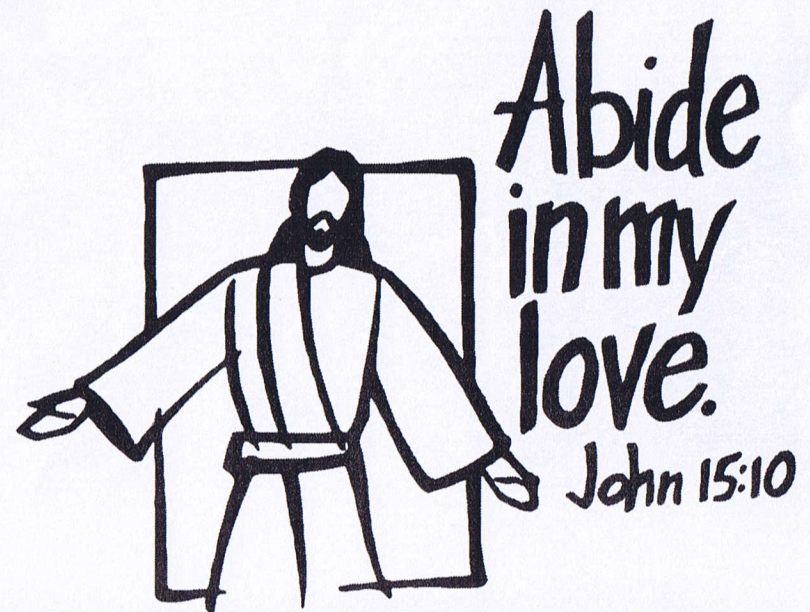 Abide
in my
love.
John 15:10